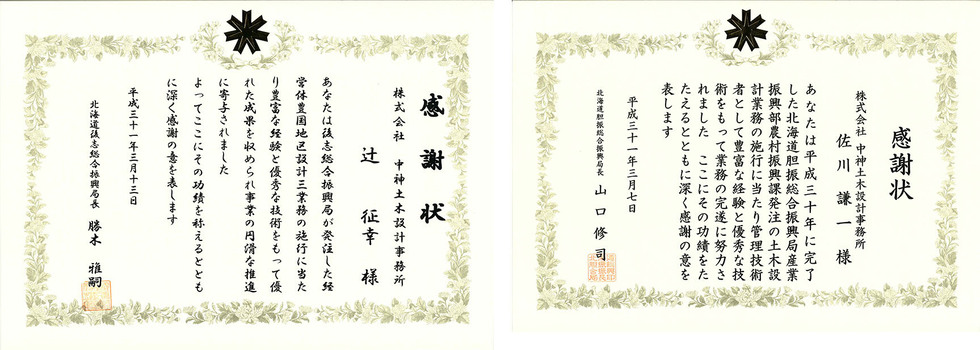 感謝状
株式会社 中神土木設計事務所
辻 征幸 様
あなたは後志総合振興局が発注した経
営体豊国地区設計三業務の施行に当た
り豊富な経験と優秀な技術をもって優
れた成果を収められ事業の円滑な推進
に寄与されました
よってここにその功績を称えるととも
に深く感謝の意を表します
平成三十一年三月十三日
北海道後志総合振興局長 勝木 雅嗣
感謝状
株式会社 中神土木設計事務所
佐川 謙一 様
あなたは平成三十年に完了
した北海道胆振総合振興局産業
振興部農村振興課発注の土木設
計業務の施行に当たり管理技術
者として豊富な経験と優秀な技
術をもって業務の完遂に努力さ
れました ここにその功績をた
たえるとともに深く感謝の意を
表します
平成三十一年三月七日
北海道胆振総合振興局長 山口修司